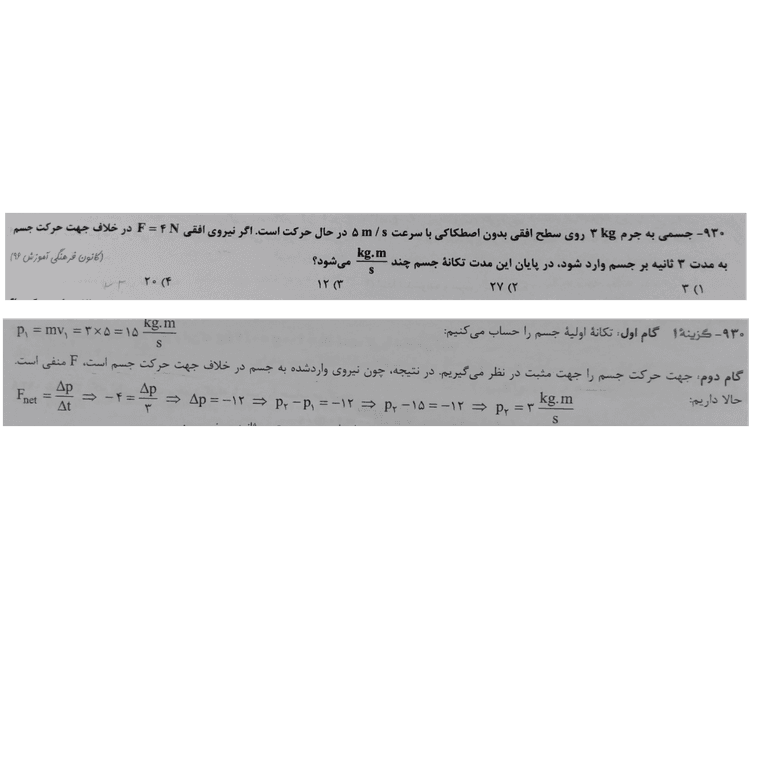 ۹۳۰- جسمی به جرم ۳ kg روی سطح افقی بدون اصطکاکی با سرعت ۵ m / s در حال حرکت است. اگر نیروی افقی F = ۴ N در خلاف جهت حرکت جسم
به مدت ۳ ثانیه بر جسم وارد شود، در پایان این مدت تکانهٔ جسم چند kg.m/s می‌شود؟ (کانون فرهنگی آموزش ۹۶)
۱) ۳ ۲) ۲۷ ۳) ۱۲ ۴) ۲۰
۹۳۰- گزینهٔ ۱ گام اول: تکانهٔ اولیهٔ جسم را حساب می‌کنیم: p₁ = mv₁ = ۳×۵ = ۱۵ kg.m/s
گام دوم: جهت حرکت جسم را جهت مثبت در نظر می‌گیریم. در نتیجه، چون نیروی واردشده به جسم در خلاف جهت حرکت جسم است، F منفی است.
حالا داریم: F_net = Δp/Δt ⇒ -۴ = Δp/۳ ⇒ Δp = -۱۲ ⇒ p₂ - p₁ = -۱۲ ⇒ p₂ - ۱۵ = -۱۲ ⇒ p₂ = ۳ kg.m/s